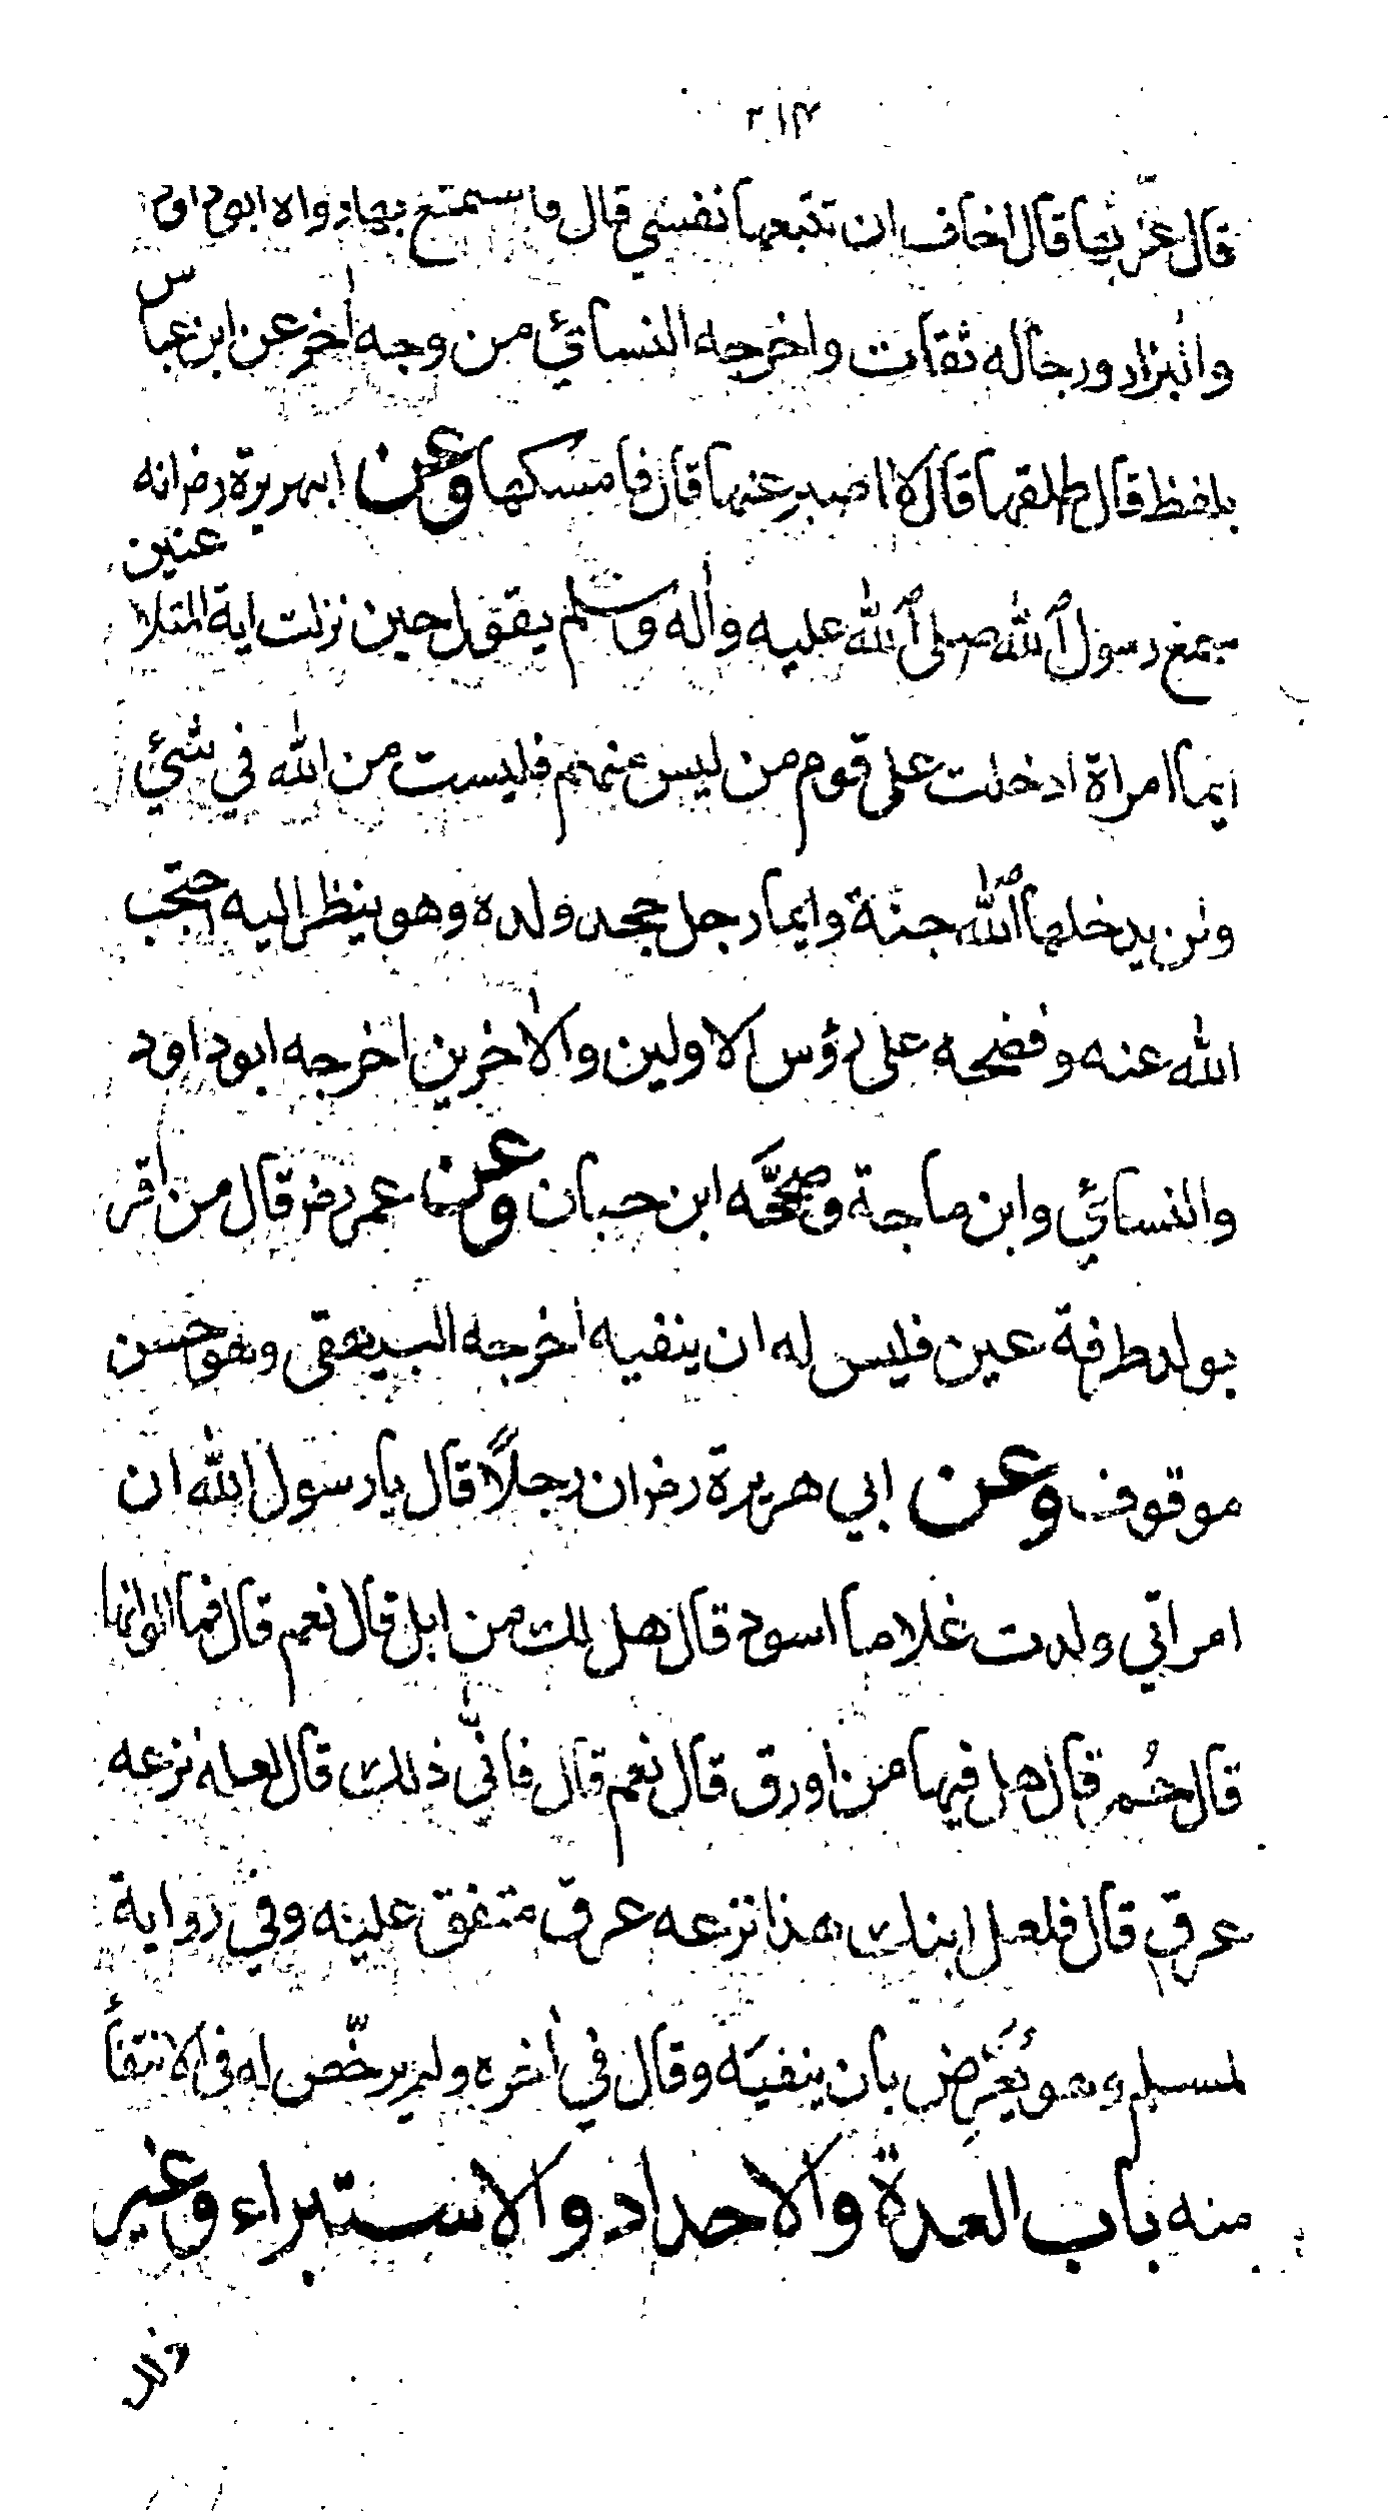 ٣١٣
قال غرّبها قال اخاف ان تتبعها نفسي قال فاستمتع بها رواه ابو داود
والبزار ورجاله ثقات واخرجه النسائي من وجه اٰخر عن ابن عباس
بلفظ قال طلقها قال لا اصبر عنها قال فامسكها وعن ابيهريرة رض انه
سمع رسول الله صلى الله عليه واٰله وسلم يقول حين نزلت اية المتلاعنين
ايما امراة ادخلت على قوم من ليس منهم فليست من الله في شيئ
ولن يدخلها الله جنة وايما رجل جحد ولده وهو ينظر اليه احتجب
الله عنه وفضحه على رؤس الاولين والاٰخرين اخرجه ابو داود
والنسائي وابن ماجة وصححّه ابن حبان وعن عمر رض قال من اقر
بولد طرفة عين فليس له ان ينفيه اخرجه البيهقى وهو حسن
موقوف وعن ابي هريرة رض ان رجلًا قال يا رسول الله ان
امراتي ولدت غلاما اسود قال هل لك من ابل قال نعم قال فما الوانها
قال حُمر قال هل فيها من اورق قال نعم قال فانّى ذلك قال لعله نزعه
عرق قال فلعل ابنك هذا نزعه عرق متفق عليه وفي رواية
لمسلم وهو يُعَرِّض بان ينفيَه وقال في اٰخره ولم يرخّص له في الانتفأ
منه باب العدة والاحداد والاستبراء وغير
ذلك